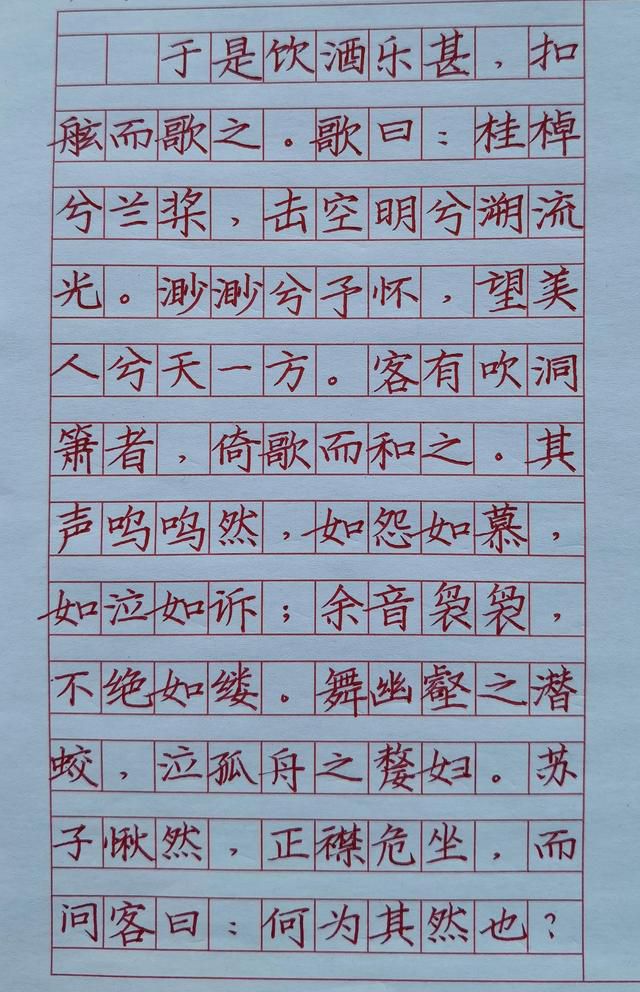 于是饮酒乐甚，扣
舷而歌之。歌曰：桂棹
兮兰桨，击空明兮溯流
光。渺渺兮予怀，望美
人兮天一方。客有吹洞
箫者，倚歌而和之。其
声呜呜然，如怨如慕，
如泣如诉；余音袅袅，
不绝如缕。舞幽壑之潜
蛟，泣孤舟之嫠妇。苏
子愀然，正襟危坐，而
问客曰：何为其然也？